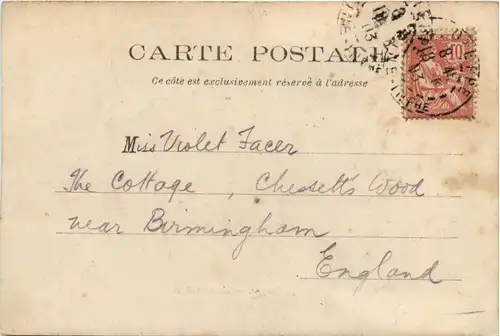 CARTE POSTALE
Ce côté est exclusivement réservé à l'adresse
10
Miss Violet Facer
The Cottage, Chessett's Wood
near Birmingham
England